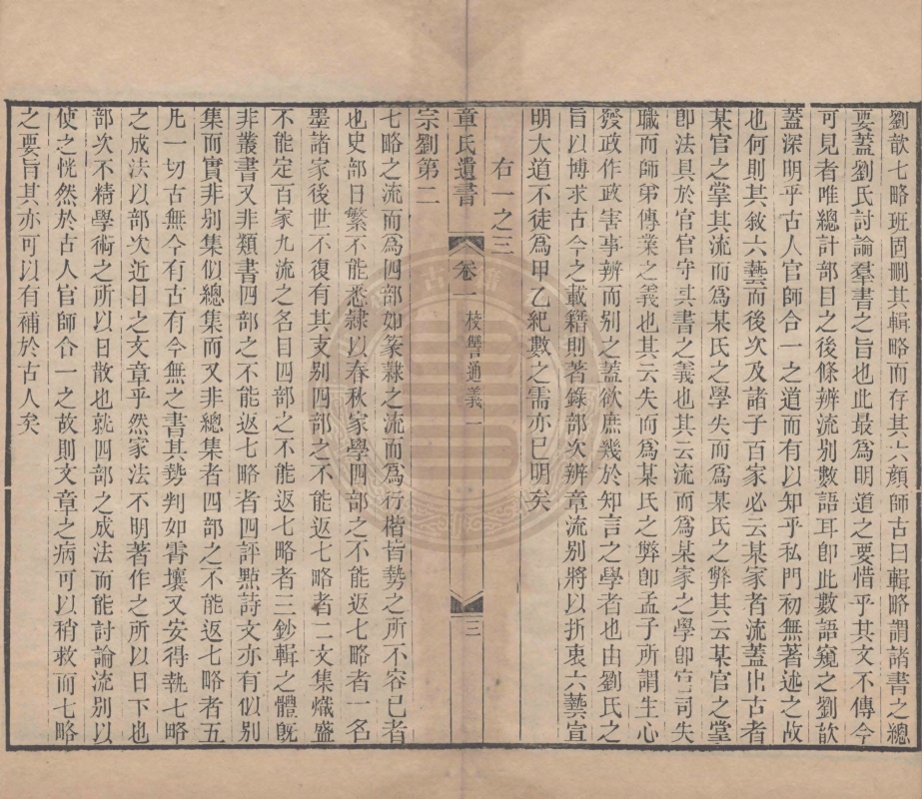 劉歆七略班固刪其輯略而存其六顔師古曰輯略謂諸書之總
要蓋劉氏討論羣書之旨也此最爲明道之要惜乎其文不傳今
可見者唯總計部目之後條辨流別數語耳卽此數語窺之劉歆
蓋深明乎古人官師合一之道而有以知乎私門初無著述之故
也何則其敘六藝而後次及諸子百家必云某家者流蓋出古者
某官之掌其流而爲某氏之學失而爲某氏之弊其云某官之掌
卽法具於官官守其書之義也其云流而爲某家之學卽官司失
職而師弟傳業之義也其云失而爲某氏之弊卽孟子所謂生心
發政作政害事辨而別之蓋欲庶幾於知言之學者也由劉氏之
旨以博求古今之載籍則著錄部次辨章流別將以折衷六藝宣
明大道不徒爲甲乙紀數之需亦已明矣
右一之三
章氏遺書
卷一
校讐通義一
三
宗劉第二
七略之流而爲四部如篆隸之流而爲行楷皆勢之所不容已者
也史部日繁不能悉隸以春秋家學四部之不能返七略者一名
墨諸家後世不復有其支別四部之不能返七略者二文集熾盛
不能定百家九流之名目四部之不能返七略者三鈔輯之體旣
非叢書又非類書四部之不能返七略者四評點詩文亦有似別
集而實非別集似總集而又非總集者四部之不能返七略者五
凡一切古無今有古有今無之書其勢判如霄壤又安得執七略
之成法以部次近日之文章乎然家法不明著作之所以日下也
部次不精學術之所以日散也就四部之成法而能討論流別以
使之恍然於古人官師合一之故則文章之病可以稍救而七略
之要旨其亦可以有補於古人矣